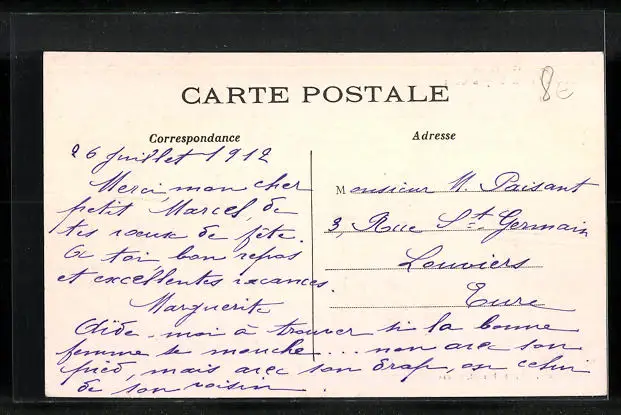 8€
CARTE POSTALE
Correspondance
Adresse
26 Juillet 1912
Merci, mon cher
petit Marcel, de
tes vœux de fête.
A toi bon repos
et excellentes vacances.
Marguerite
Aide-moi à trouver si la bonne
femme se mouche.... non avec son
pied, mais avec son drap, ou celui
de son voisin.
Monsieur M. Paisant
3, Rue St. Germain
Louviers
Eure